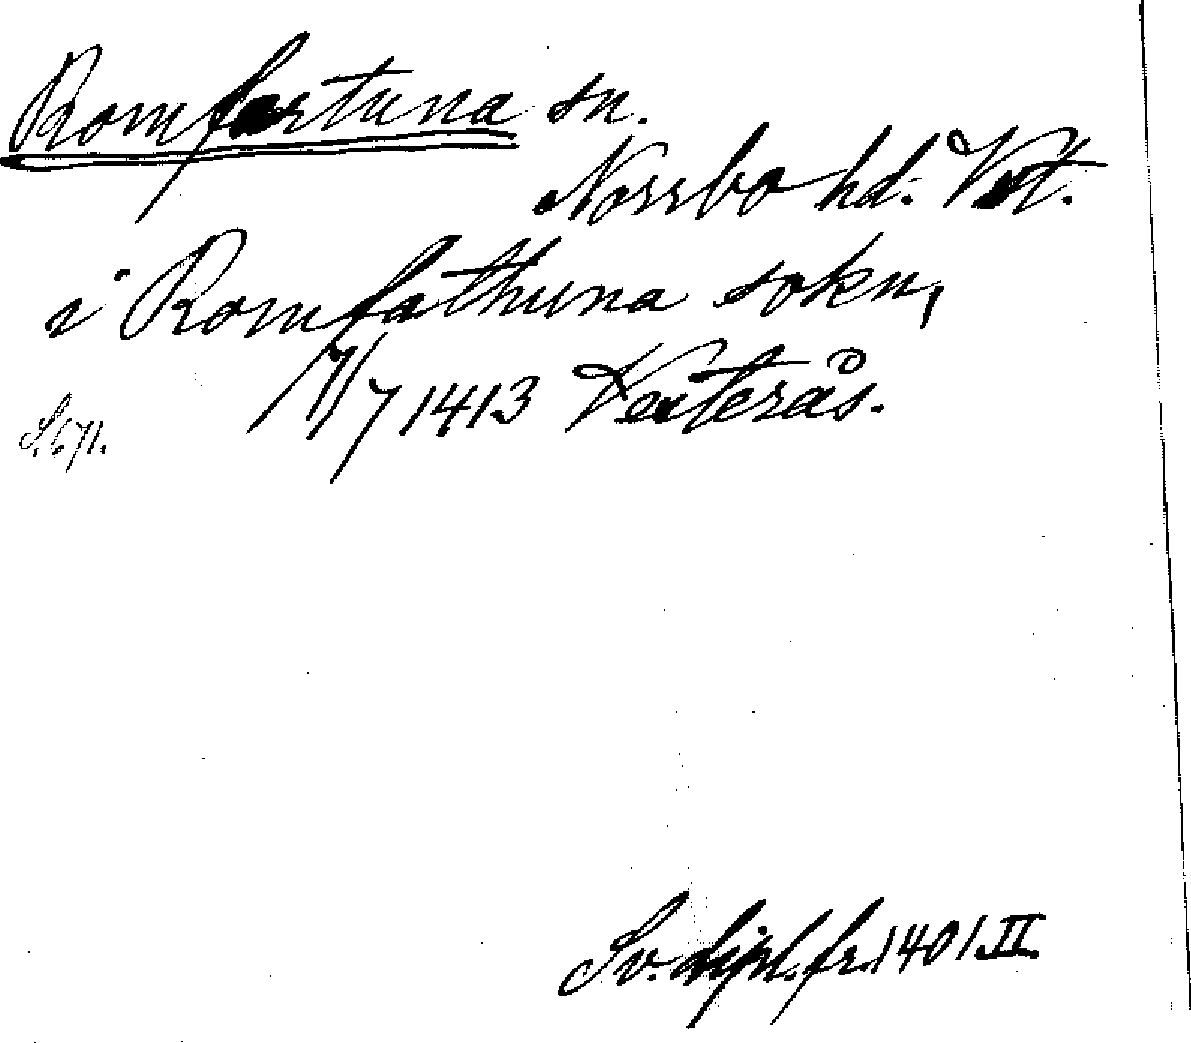 Romfartuna sn.
Norrbo hd. Vst.
i Romfathuna sokn,
11/7 1413 Vesterås.
S. 671.
Sv. dipl. fr. 1401 II.